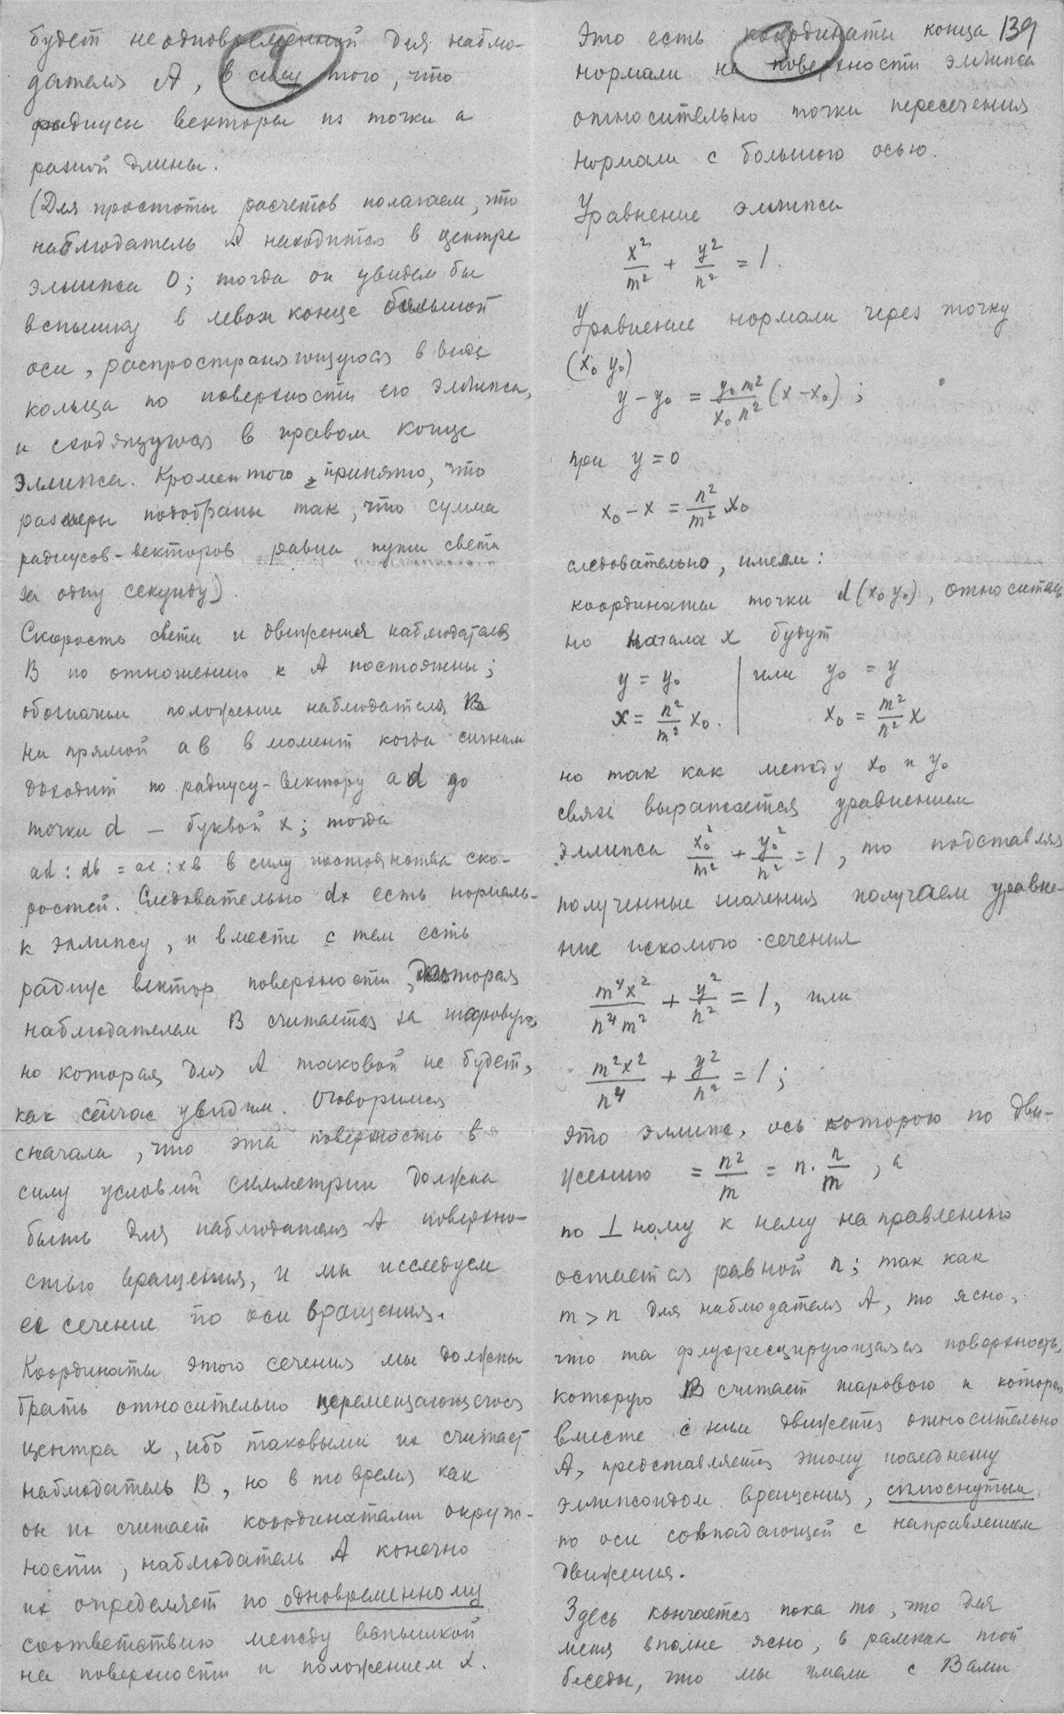 будет неодновременной для наблю-
дателя А, в силу того, что
радиусы векторы из точки а
разной длины.
(Для простоты расчетов полагаем, что
наблюдатель А находится в центре
эллипса О; тогда он увидел бы
вспышку в левом конце большой
оси, распространяющуюся в виде
кольца по поверхности его эллипса,
и сходящуюся в правом конце
эллипса. Кроме того принято, что
размеры подобраны так, что сумма
радиусов-векторов равна пути света
за одну секунду).
Скорость света и движения наблюдателя
В по отношению к А постоянны;
обозначим положение наблюдателя В
на прямой ab в момент когда сигнал
доходит по радиусу-вектору ad до
точки d — буквой x; тогда
ad : db = ax : xb в силу постоянства ско-
ростей. Следовательно dx есть нормаль
к эллипсу, и вместе с тем есть
радиус вектор поверхности, которая
наблюдателем В считается за шаровую,
но которая для А таковой не будет,
как сейчас увидим. Оговоримся
сначала, что эта поверхность в
силу условий симметрии должна
быть для наблюдателя А поверхно-
стью вращения, и мы исследуем
ее сечение по оси вращения.
Координаты этого сечения мы должны
брать относительно перемещающегося
центра x, ибо таковыми их считает
наблюдатель В, но в то время как
он их считает координатами окруж-
ности, наблюдатель А конечно
их определяет по одновременному
соответствию между вспышкой
на поверхности и положением x.
139
Это есть координаты конца
нормали на поверхности эллипса
относительно точки пересечения
нормали с большою осью.
Уравнение эллипса
x²/m² + y²/n² = 1.
Уравнение нормали через точку
(x₀ y₀)
y − y₀ = y₀ m²/x₀ n² (x − x₀) ;
при y = 0
x₀ − x = n²/m² x₀
следовательно, имеем:
координаты точки d (x₀ y₀), относитель
но начала x будут
y = y₀ | или y₀ = y
x = n²/m² x₀. | x₀ = m²/n² x
но так как между x₀ и y₀
связь выражается уравнением
эллипса x₀²/m² + y₀²/n² = 1, то подставляя
полученные значения получаем уравне-
ние искомого сечения
m⁴x²/n⁴m² + y²/n² = 1, или
m²x²/n⁴ + y²/n² = 1 ;
это эллипс, ось которого по дви-
жению = n²/m = n · n/m , а
по ⊥ ному к нему направлению
остается равной n; так как
m > n для наблюдателя А, то ясно,
что та флуоресцирующая поверхность,
которую В считает шаровою и которая
вместе с ним движется относительно
А, представляется этому последнему
эллипсоидом вращения, сплюснутым
по оси совпадающей с направлением
движения.
Здесь кончается пока то, что для
меня вполне ясно, в рамках той
беседы, что мы имели с Вами